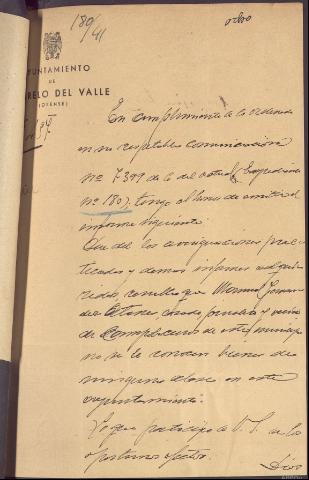 180/41
AYUNTAMIENTO
DE
RELO DEL VALLE
(ORENSE)
En cumplimiento a lo ordenado
en su respetable comunicación
nº 7399 de 6 del actual (Expediente
nº 180), tengo el honor de emitir el
informe siguiente:
Que de las averiguaciones prac-
ticadas y demás informes adqui-
ridos, resulta que Manuel
y vecino
de este municipio
no se le conocen bienes de
ninguna clase en este
Ayuntamiento.
Lo que participo a V. S. a los
oportunos efectos.
Dios